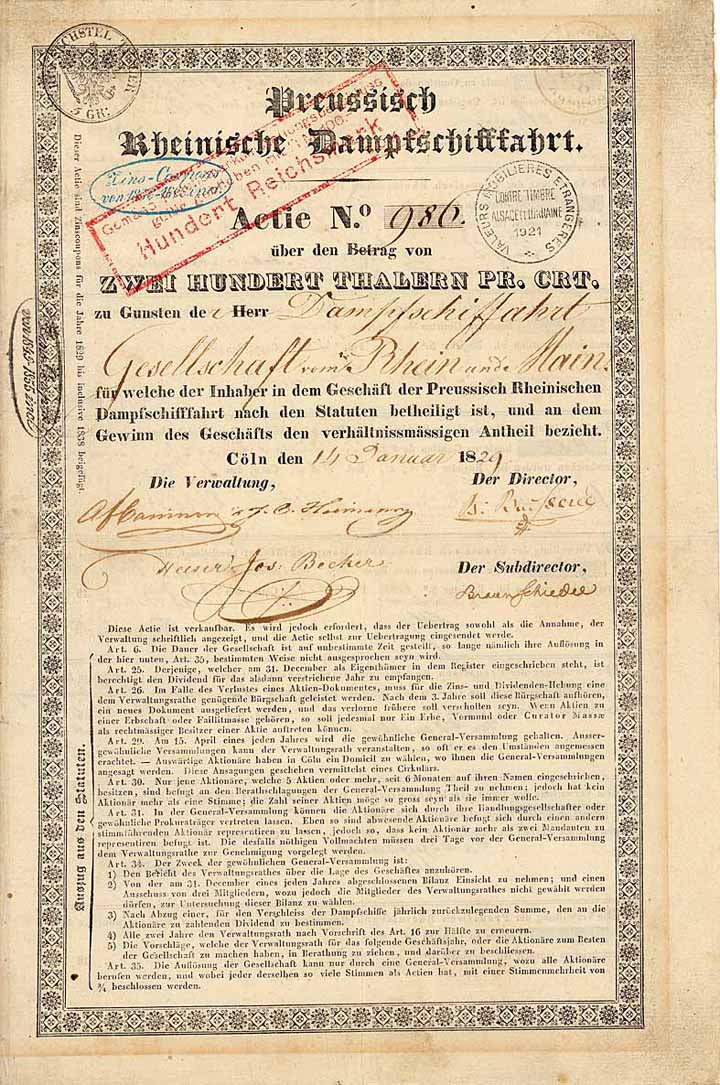 5 GR.
Preussisch
Rheinische Dampfschifffahrt.
Hundert Reichsmark
Zins-Coupons
Actie N.º 986.
VALEURS MOBILIERES ETRANGERES
CONTRE TIMBRE
1921
über den Betrag von
ZWEI HUNDERT THALERN PR. CRT.
zu Gunsten de r Herr Dampfschiffahrt
Gesellschaft vom Rhein und Main
für welche der Inhaber in dem Geschäft der Preussisch Rheinischen
Dampfschifffahrt nach den Statuten betheiligt ist, und an dem
Gewinn des Geschäfts den verhältnissmässigen Antheil bezieht.
Cöln den 14 Januar 1829
Die Verwaltung, Der Director,
Heinr. Jos. Becker
Der Subdirector,
Dieser Actie sind Zinscoupons für die Jahre 1829 bis inclusive 1838 beigefügt
Diese Actie ist verkaufbar. Es wird jedoch erfordert, dass der Uebertrag sowohl als die Annahme, der
Verwaltung schriftlich angezeigt, und die Actie selbst zur Uebertragung eingesendet werde.
Auszug aus den Statuten.
Art. 6. Die Dauer der Gesellschaft ist auf unbestimmte Zeit gestellt, so lange nämlich ihre Auflösung in
der hier unten, Art. 35, bestimmten Weise nicht ausgesprochen seyn wird.
Art. 25. Derjenige, welcher am 31. December als Eigenthümer in dem Register eingeschrieben steht, ist
berechtigt den Dividend für das alsdann verstrichene Jahr zu empfangen.
Art. 26. Im Falle des Verlustes eines Aktien-Dokumentes, muss für die Zins- und Dividenden-Hebung eine
dem Verwaltungsrathe genügende Bürgschaft geleistet werden. Nach dem 3. Jahre soll diese Bürgschaft aufhören,
ein neues Dokument ausgeliefert werden, und das verlorne frühere soll verschollen seyn. Wenn Aktien zu
einer Erbschaft oder Faillitmasse gehören, so soll jedesmal nur Ein Erbe, Vormund oder Curator Massæ
als rechtmässiger Besitzer einer Aktie auftreten können.
Art. 29. Am 15. April eines jeden Jahres wird die gewöhnliche General-Versammlung gehalten. Ausser-
gewöhnliche Versammlungen kann der Verwaltungsrath veranstalten, so oft er es den Umständen angemessen
erachtet. — Auswärtige Aktionäre haben in Cöln ein Domicil zu wählen, wo ihnen die General-Versammlungen
angesagt werden. Diese Ansagungen geschehen vermittelst eines Cirkulars.
Art. 30. Nur jene Aktionäre, welche 5 Aktien oder mehr, seit 6 Monaten auf ihren Namen eingeschrieben,
besitzen, sind befugt an den Berathschlagungen der General-Versammlung Theil zu nehmen; jedoch hat kein
Aktionär mehr als eine Stimme; die Zahl seiner Aktien möge so gross seyn als sie immer wolle.
Art. 31. In der General-Versammlung können die Aktionäre sich durch ihre Handlungsgesellschafter oder
gewöhnliche Prokuraträger vertreten lassen. Eben so sind abwesende Aktionäre befugt sich durch einen andern
stimmführenden Aktionär representiren zu lassen, jedoch so, dass kein Aktionär mehr als zwei Mandanten zu
representiren befugt ist. Die desfalls nöthigen Vollmachten müssen drei Tage vor der General-Versammlung
dem Verwaltungsrathe zur Genehmigung vorgelegt werden.
Art. 34. Der Zweck der gewöhnlichen General-Versammlung ist:
1) Den Bericht des Verwaltungsrathes über die Lage des Geschäftes anzuhören.
2) Von der am 31. December eines jeden Jahres abgeschlossenen Bilanz Einsicht zu nehmen; und einen
Ausschuss von drei Mitgliedern, wozu jedoch die Mitglieder des Verwaltungsrathes nicht gewählt werden
dürfen, zur Untersuchung dieser Bilanz zu wählen.
3) Nach Abzug einer, für den Verschleiss der Dampfschiffe jährlich zurückzulegenden Summe, den an die
Aktionäre zu zahlenden Dividend zu bestimmen.
4) Alle zwei Jahre den Verwaltungsrath nach Vorschrift des Art. 16 zur Hälfte zu erneuern.
5) Die Vorschläge, welche der Verwaltungsrath für das folgende Geschäftsjahr, oder die Aktionäre zum Besten
der Gesellschaft zu machen haben, in Berathung zu ziehen, und darüber zu beschliessen.
Art. 35. Die Auflösung der Gesellschaft kann nur durch eine General-Versammlung, wozu alle Aktionäre
berufen werden, und wobei jeder derselben so viele Stimmen als Actien hat, mit einer Stimmenmehrheit von
¾ beschlossen werden.